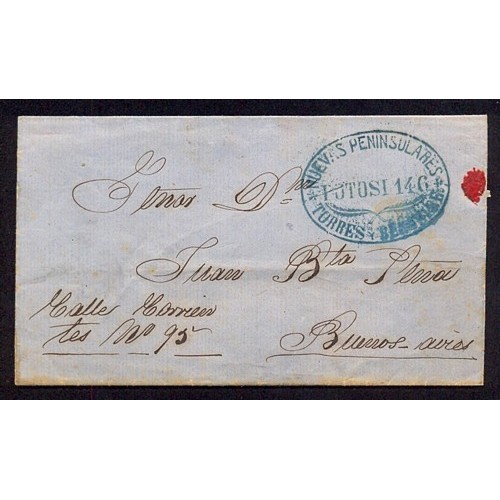 NUEVAS PENINSULARES
POTOSI 146
TORRES Y
Señor Dn
Juan Bta Peña
Calle Corrien
tes No 95
Buenos-aires